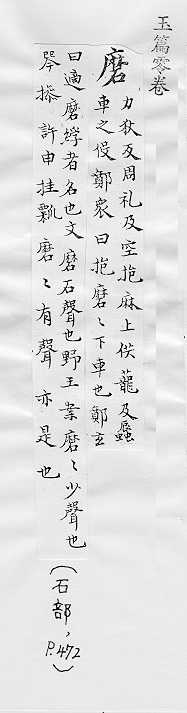 玉篇零卷
磨 力狄反周礼及空抱麻上俟蘢及㽅
車之役鄭衆曰抱磨〻下車也鄭玄
曰適磨䋈者名也文磨石聲也野王案磨〻少聲也
琴㨆許由挂瓢磨〻有聲亦是也
(石部，P.472)